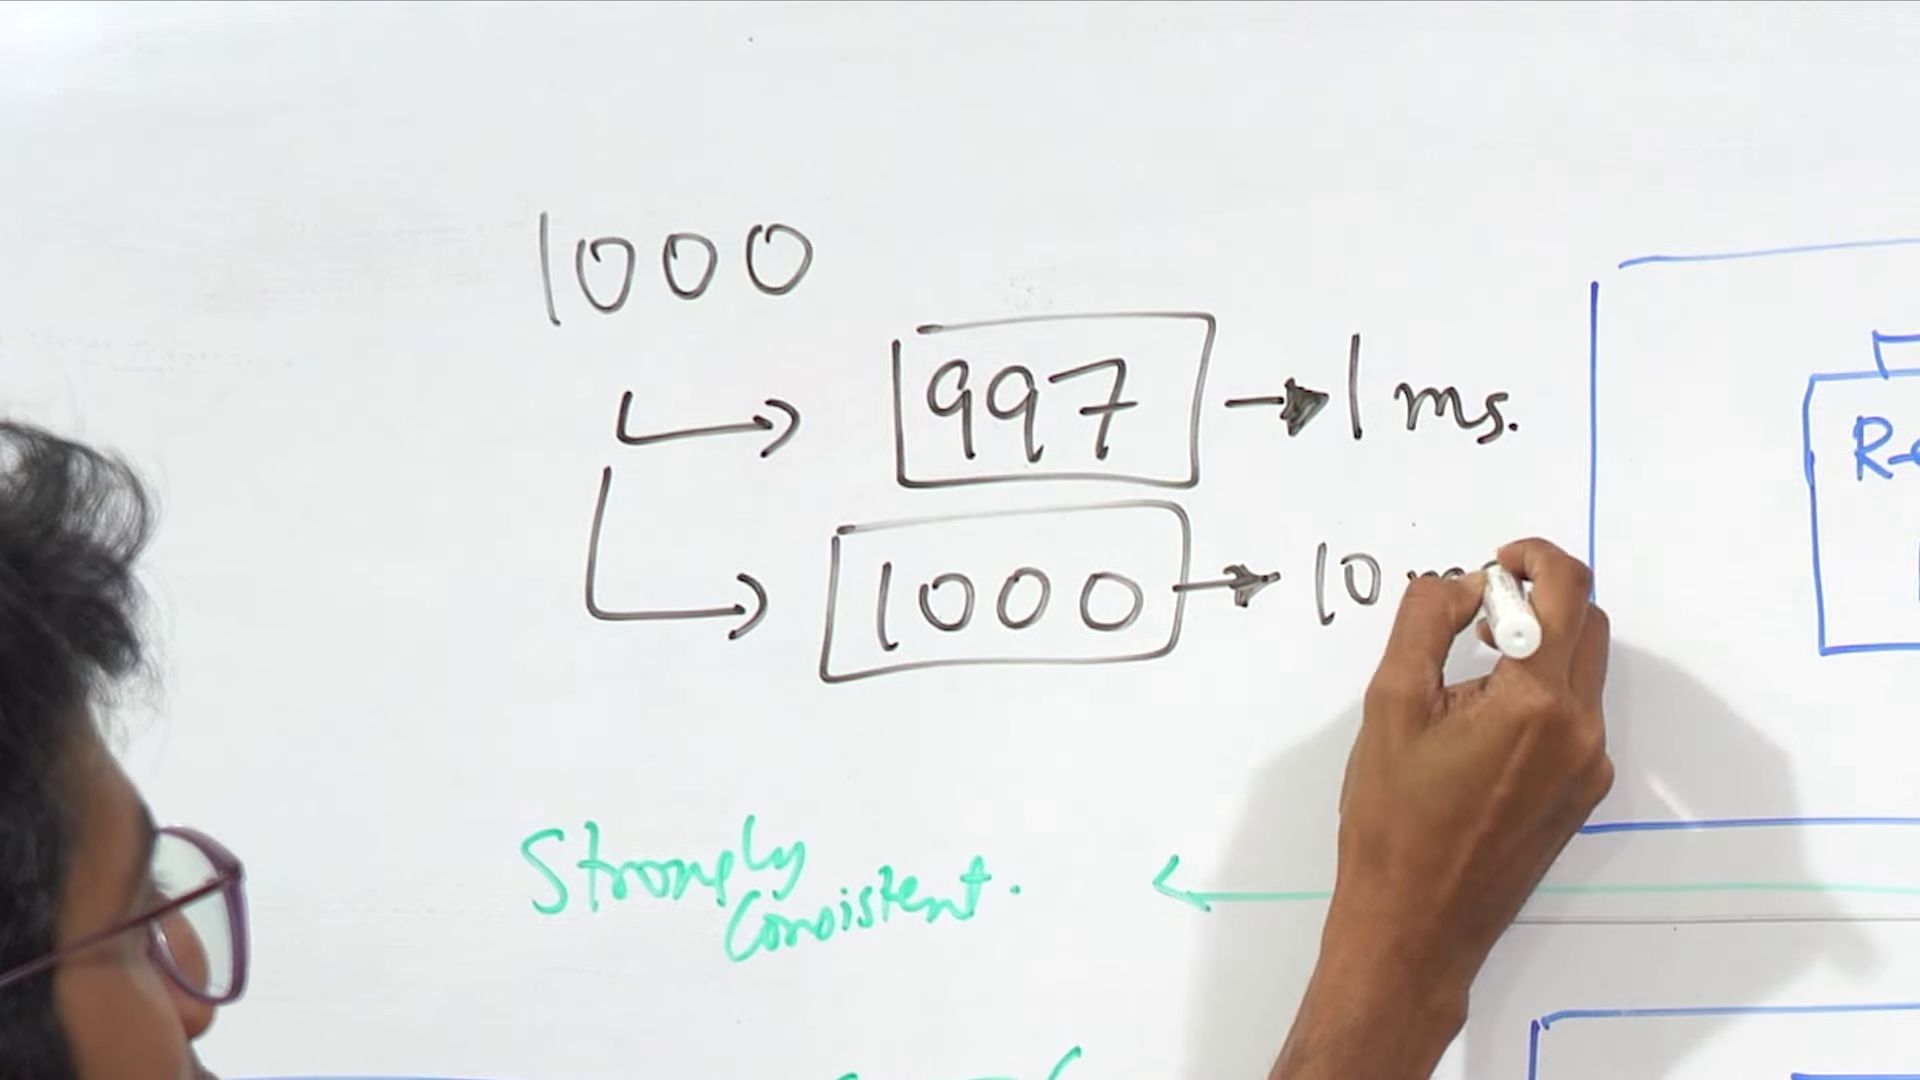 1000
997 → 1 ms.
1000 → 10 m
Strongly
Consistent.
R-